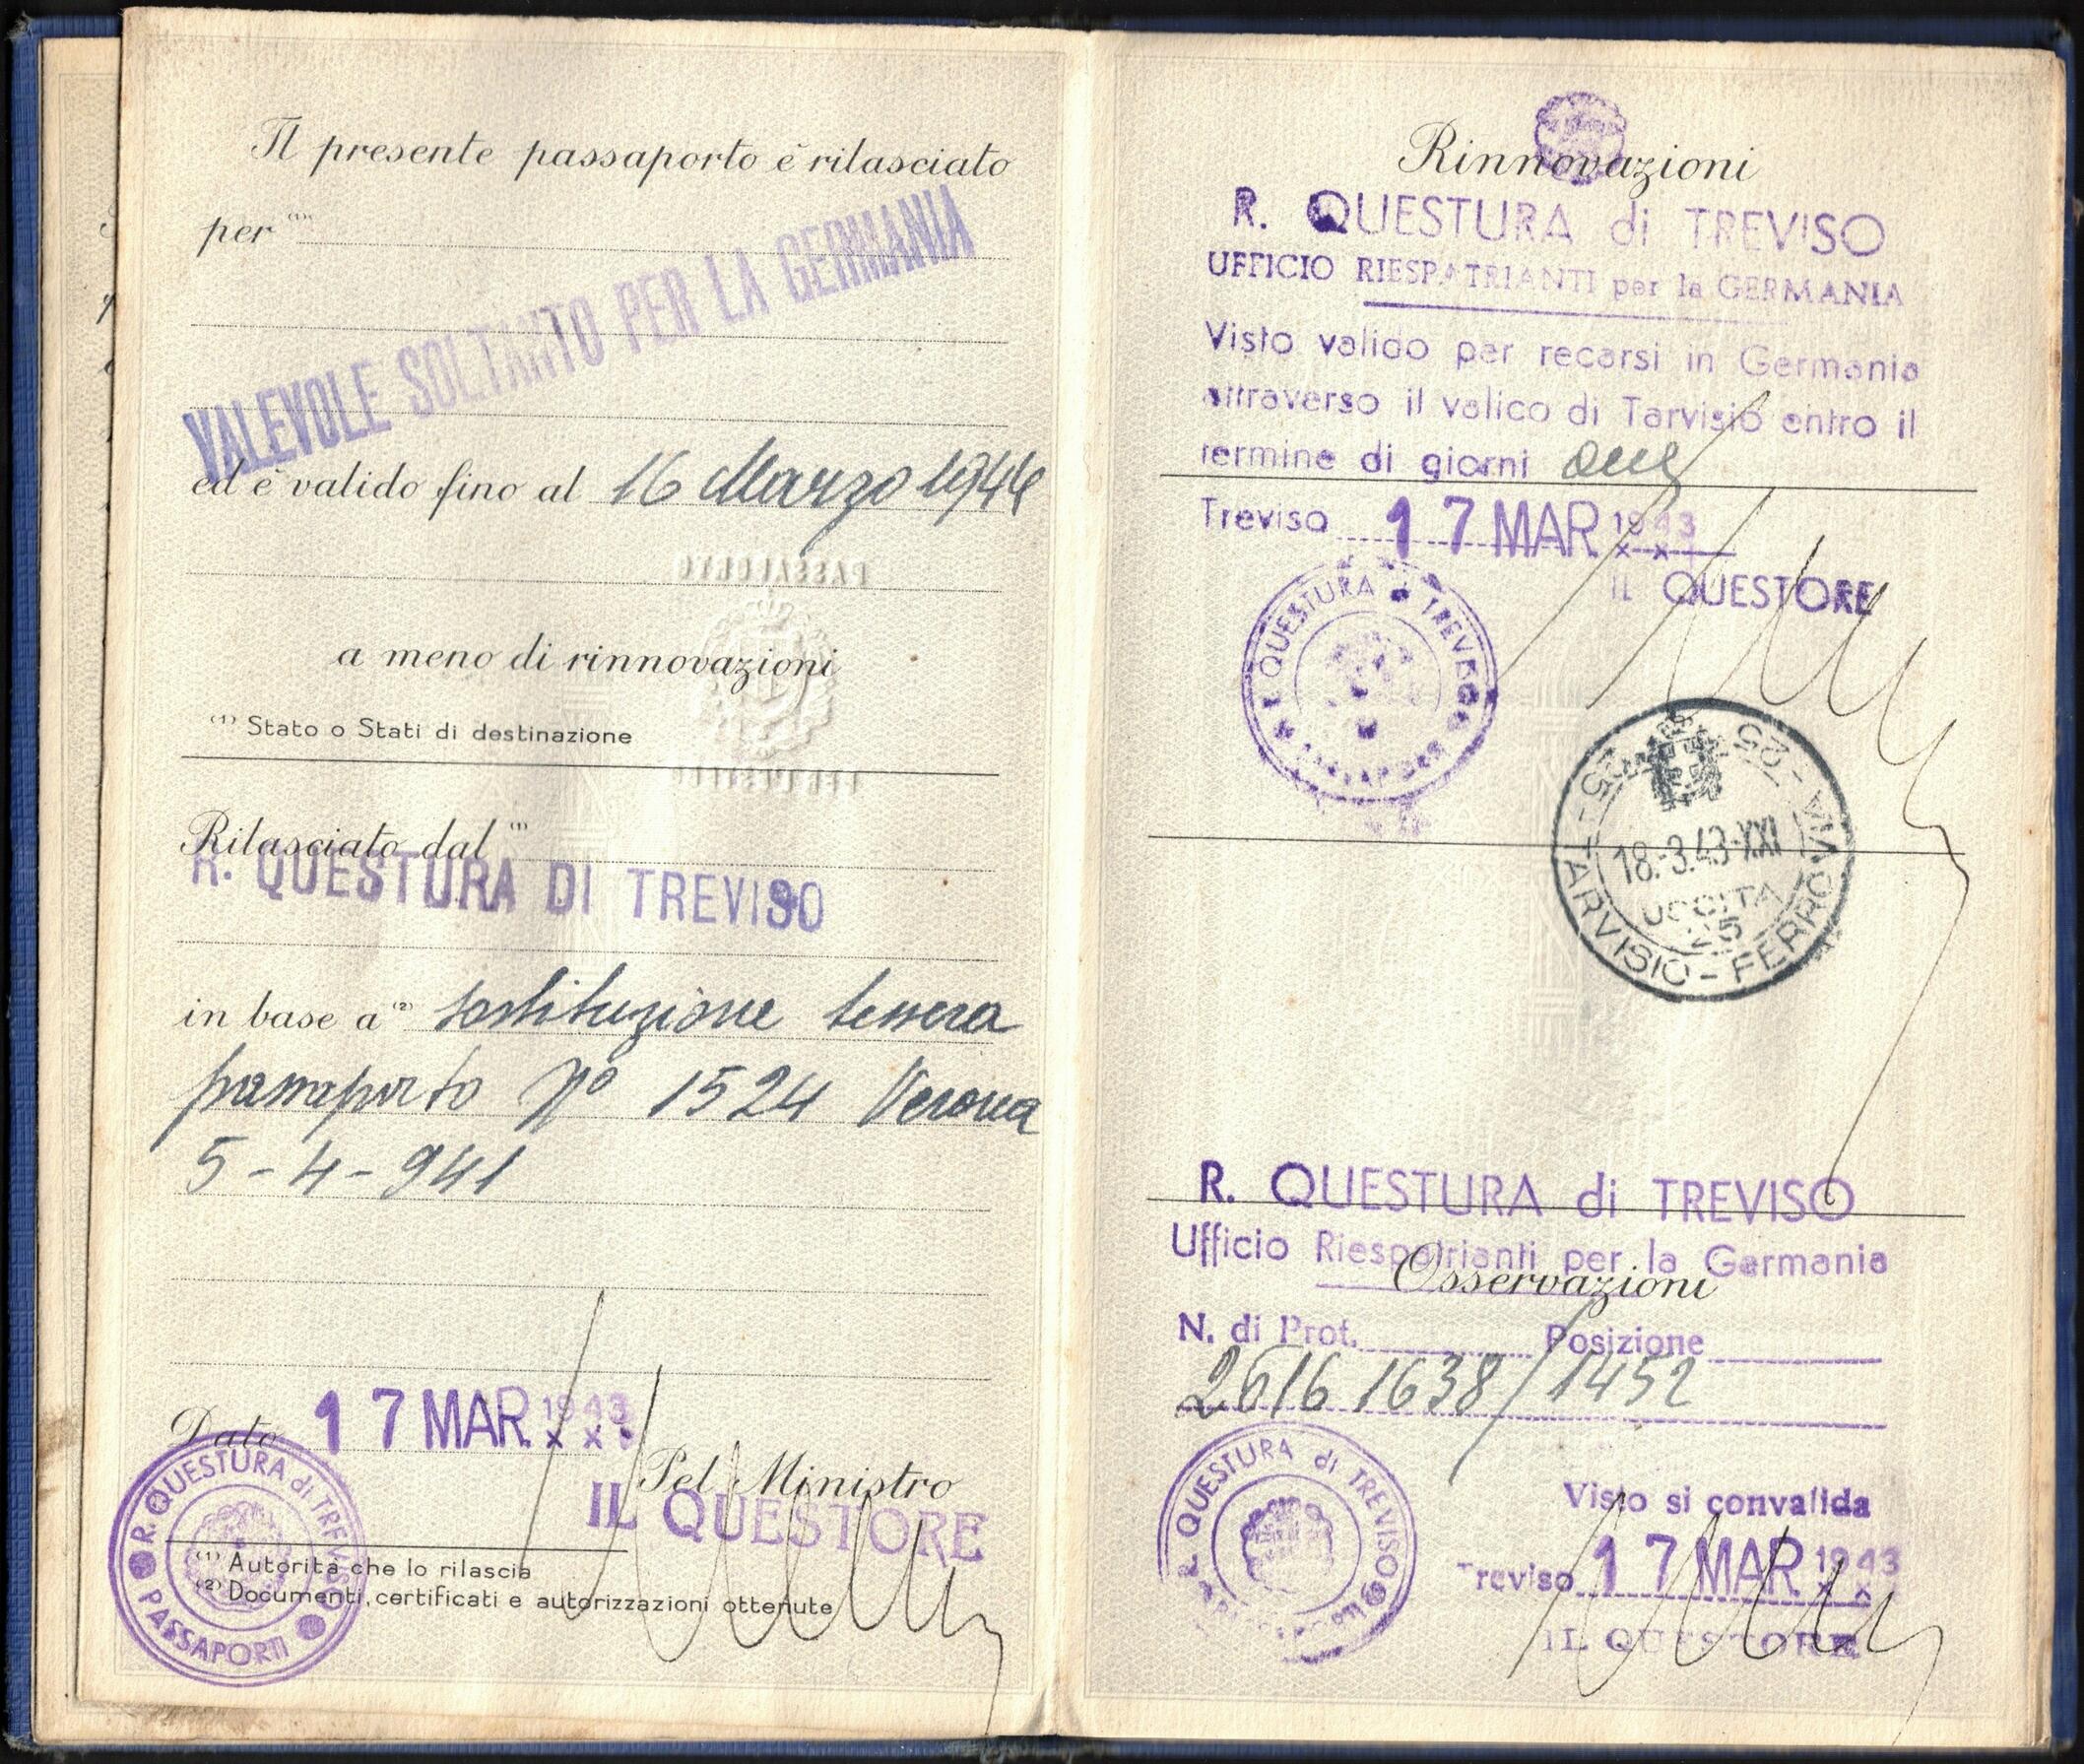 Il presente passaporto è rilasciato
per (1)
VALEVOLE SOLTANTO PER LA GERMANIA
ed è valido fino al 16 Marzo 1944
PASSAPORTO
a meno di rinnovazioni
(1) Stato o Stati di destinazione
Rilasciato dal (1)
R. QUESTURA DI TREVISO
in base a (2) sostituzione tessera
passaporto Nº 1524 Verona
5-4-941
Data 17 MAR. 1943
Pel Ministro
IL QUESTORE
(1) Autorità che lo rilascia
(2) Documenti, certificati e autorizzazioni ottenute
R. QUESTURA di TREVISO
PASSAPORTI
Rinnovazioni
R. QUESTURA di TREVISO
UFFICIO RIESPATRIANTI per la GERMANIA
Visto valido per recarsi in Germania
attraverso il valico di Tarvisio entro il
termine di giorni
Treviso 17 MAR 1943
IL QUESTORE
R. QUESTURA di TREVISO
25 - TARVISIO - FERROVIA - 25
18.-3.43-XXI
USCITA
25
R. QUESTURA di TREVISO
Ufficio Riespatrianti per la Germania
Osservazioni
N. di Prot. Posizione
2616 1638/1452
R. QUESTURA di TREVISO
Visto si convalida
Treviso 17 MAR 1943
IL QUESTORE